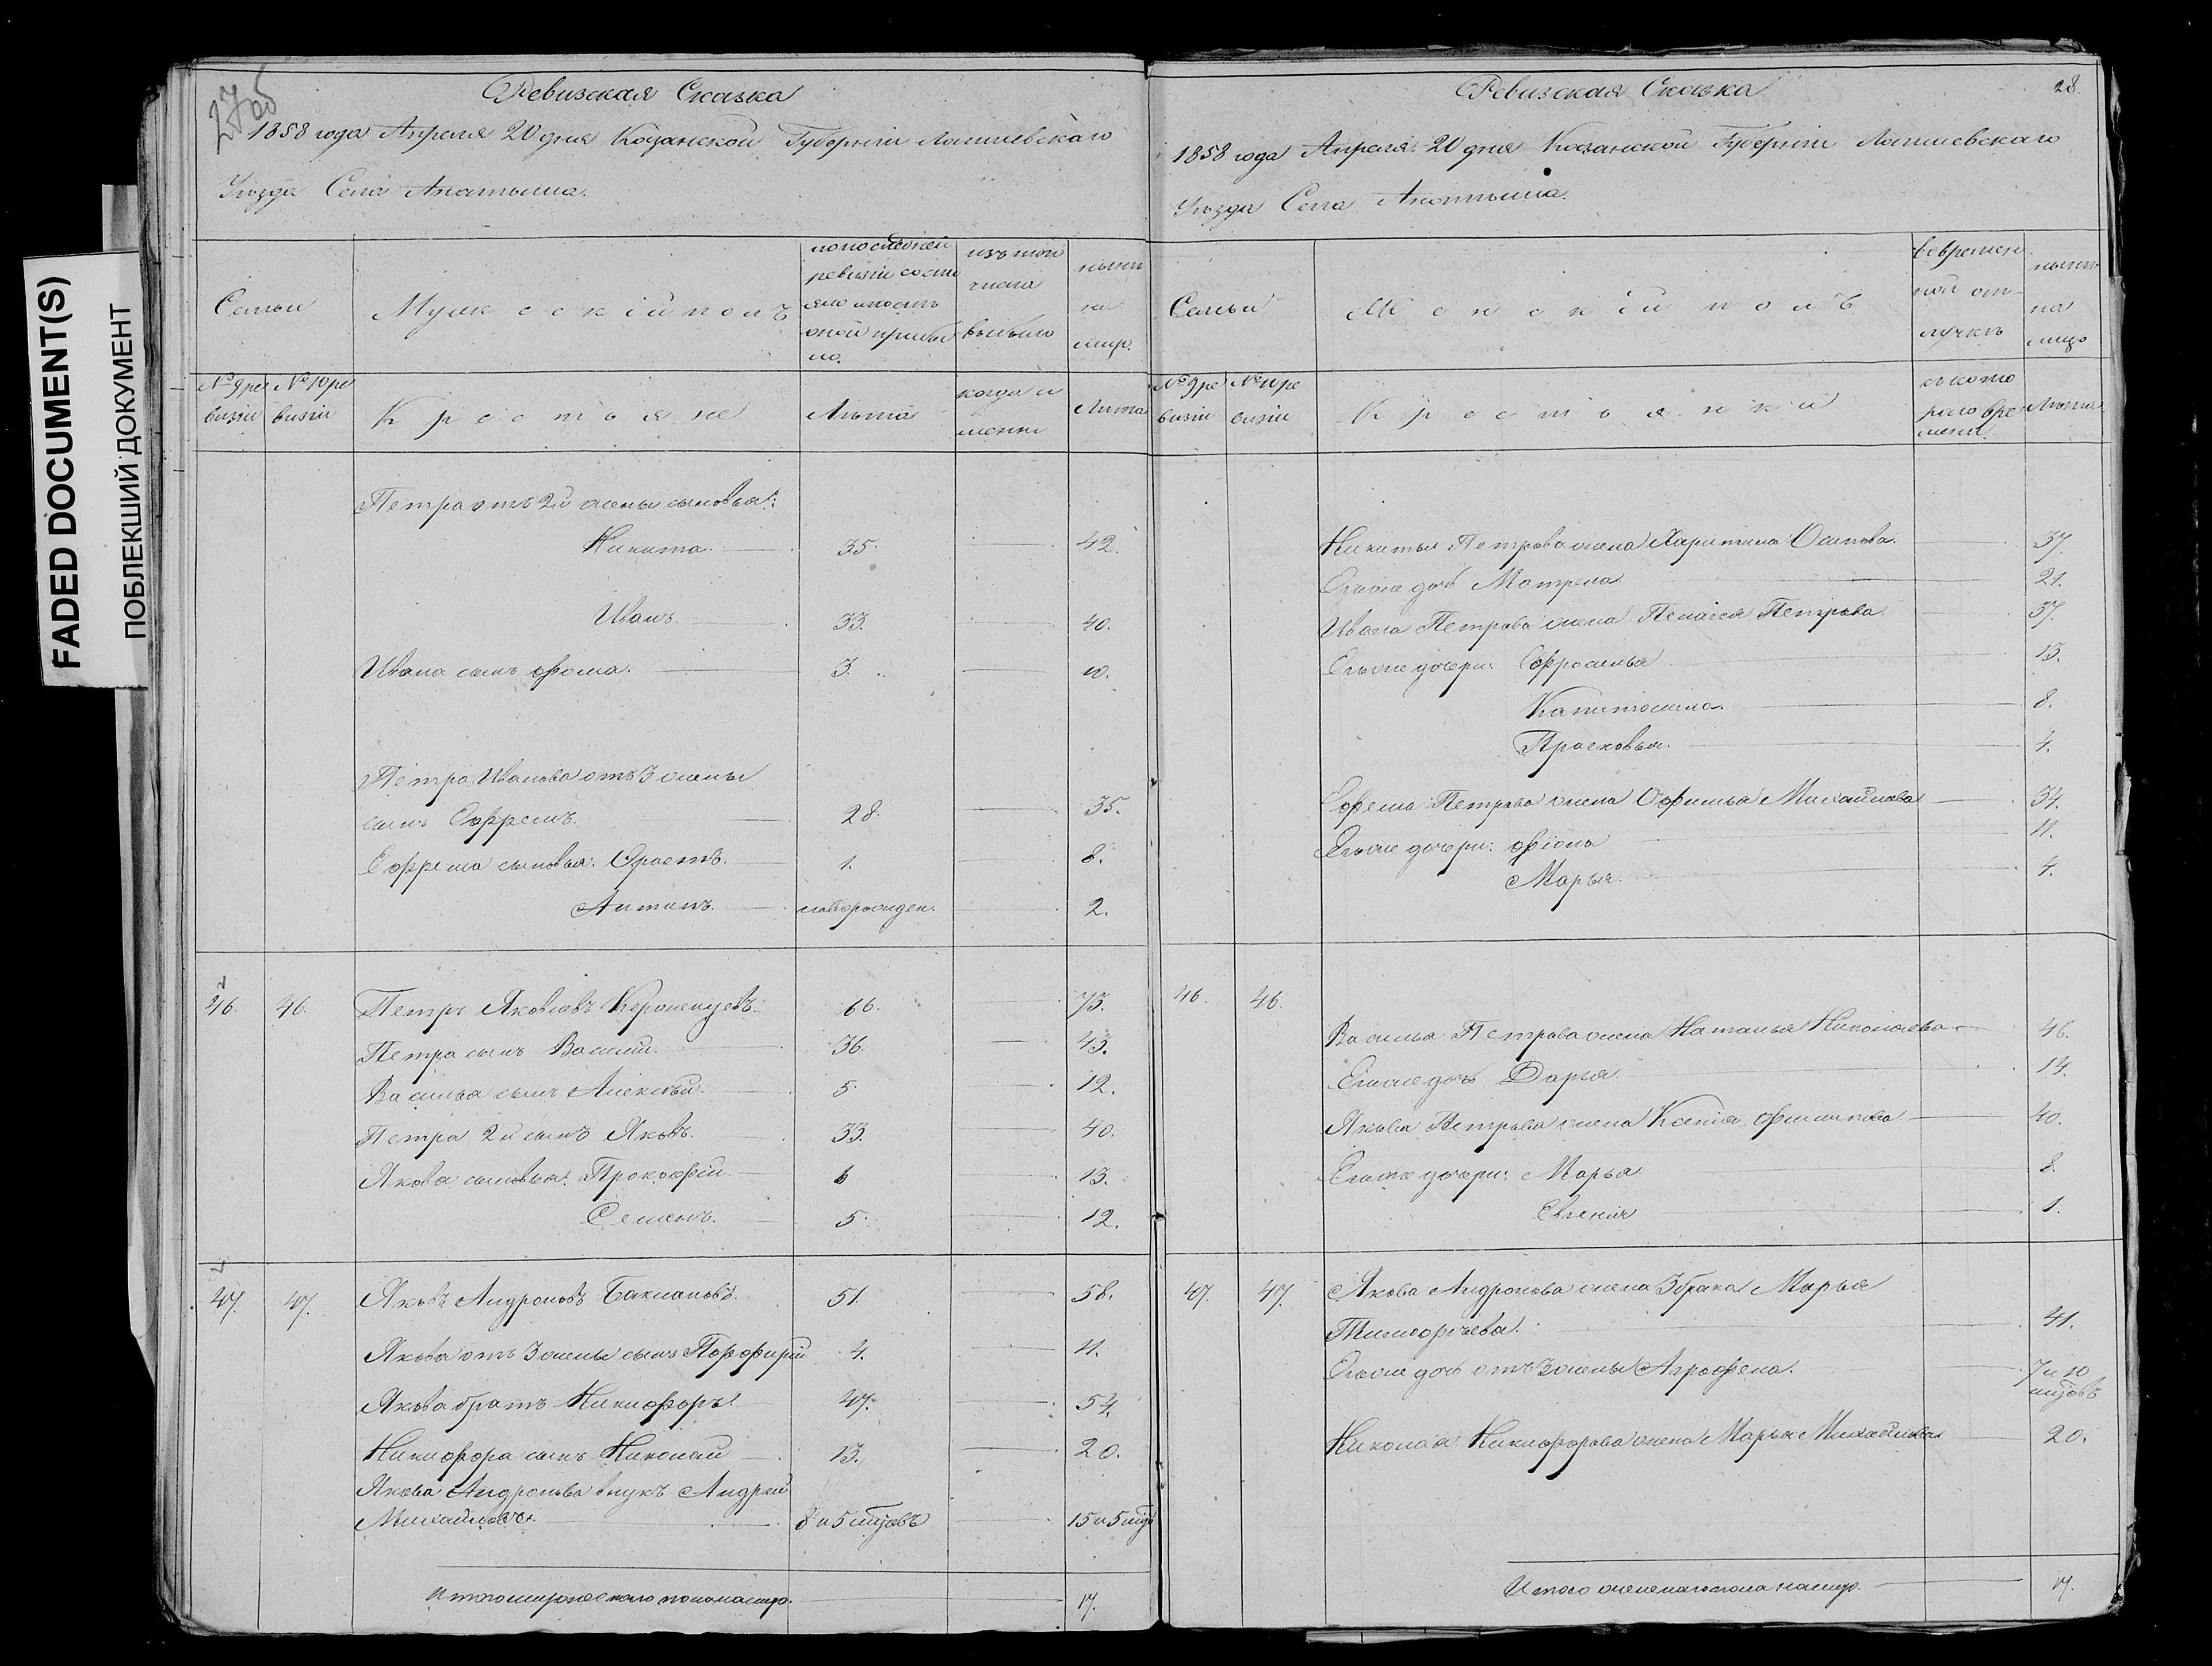 FADED DOCUMENT(S)
ПОБЛЕКШИЙ ДОКУМЕНТ
Ревизская Сказка
1858 года Апреля 20 дня Казанской Губерніи Лаишевскаго
Уѣзда Села Анатыша.
Семьи
Мужескій полъ
по последней ревизіи состояло и послѣ оной прибыло.
изъ того числа выбыло
нынѣ на лицо.
№ 9 ревизіи
№ 10 ревизіи
Крестьяне
Лѣта
когда и именно
Лѣта
Петра отъ 2й жены сыновья:
Никита. 35. 42.
Иванъ. 33. 40.
Ивана сынъ Фома. 3. 10.
Петра Иванова отъ 3 жены
сынъ Ефремъ. 28. 35.
Ефрема сыновья: Ерастъ. 1. 8.
Антипъ. новорожден. 2.
46. 46. Петръ Яковлевъ 66. 73.
Петра сынъ Василій. 36. 43.
Василья сынъ Алексѣй. 5. 12.
Петра 2й сынъ Яковъ. 33. 40.
Якова сыновья: Прокофій. 6 13.
Семенъ. 5. 12.
47. 47. Яковъ Андроновъ Баклановъ. 51. 58.
Якова отъ 3 жены сынъ Порфирій 4. 11.
Якова братъ Никифоръ. 47. 54.
Никифора сынъ Николай 13. 20.
Якова Андронова внукъ Андрей
Михайловъ. 8 и 5 мцовъ 15 и 5 мцо
Итого мужескаго пола на лицо. 17.
Ревизская Сказка
28
1858 года Апреля 20 дня Казанской Губерніи Лаишевскаго
Уѣзда Села Анатыша.
Семьи
Женскій полъ
во временной отлучкѣ
нынѣ на лицо
№ 9 ревизіи
№ 10 ревизіи
Крестьянки
съ котораго времени
Лѣта
Никиты Петрова жена Харитина Осипова. 37.
Егоже дочь Матрена 21.
Ивана Петрова жена Пелагея Петрова 37.
Егоже дочери: Ефросинья 13.
Капитолина. 8.
Прасковья. 4.
Ефрема Петрова жена Офимья Михайлова 34.
Егоже дочери: Фіона 11.
Марья. 4.
46. 46.
Василья Петрова жена Наталья Николаева 46.
Егоже дочь Дарья 14.
Якова Петрова жена Ксенія Филипова 40.
Егоже дочери: Марья 8.
Евгенія 1.
47. 47. Якова Андронова жена 3 брака Марья
Тимофѣева. 41.
Егоже дочь отъ 3 жены Аграфена. 7 и 10 мцовъ
Николая Никифорова жена Марья Михайлова 20.
Итого женскаго пола на лицо. 17.